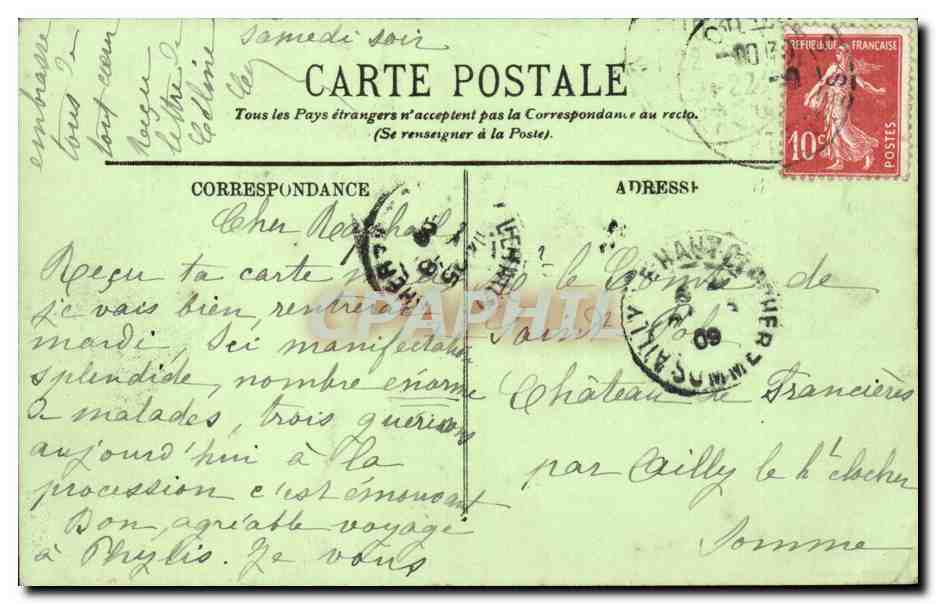 Samedi soir
embrasse
tous de
tout cœur
Reçu
lettre de
CARTE POSTALE
Tous les Pays étrangers n'acceptent pas la Correspondance au recto.
(Se renseigner à la Poste).
REPUBLIQUE FRANÇAISE
10c
POSTES
CORRESPONDANCE
ADRESSE
Cher Raphaël,
Reçu ta carte
je vais bien, rentrerai
mardi, Ici manifestation
splendide, nombre énorme
de malades, trois guérisons
aujourd'hui à la
procession c'est émouvant
Bon, agréable voyage
à Phylis. Je vous
le Comte de
Saint Pol
Château de Francières
par Ailly le ht clocher
Somme
AILLY LE HAUT CLOCHER
SOMME
09
CPAPHIL